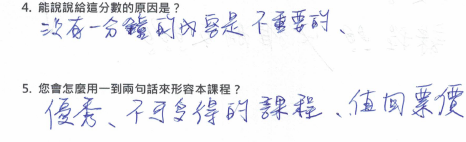 4. 能說說給這分數的原因是？
没有一分鐘的內容是不重要的、
5. 您會怎麼用一到兩句話來形容本課程？
優秀、不可多得的課程、值回票價